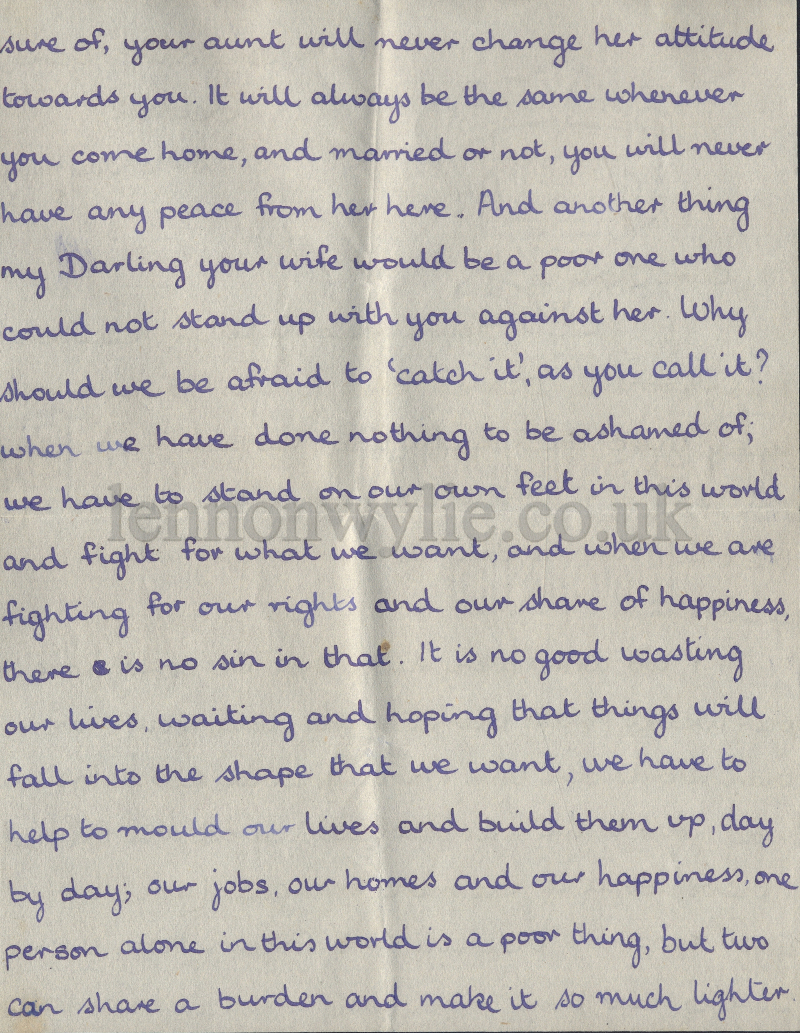 sure of, your aunt will never change her attitude
towards you. It will always be the same whenever
you come home, and married or not, you will never
have any peace from her here. And another thing
my Darling your wife would be a poor one who
could not stand up with you against her. Why
should we be afraid to 'catch it', as you call it?
when we have done nothing to be ashamed of;
we have to stand on our own feet in this world
lennonwylie.co.uk
and fight for what we want, and when we are
fighting for our rights and our share of happiness,
there is no sin in that. It is no good wasting
our lives, waiting and hoping that things will
fall into the shape that we want, we have to
help to mould our lives and build them up, day
by day; our jobs, our homes and our happiness, one
person alone in this world is a poor thing, but two
can share a burden and make it so much lighter.